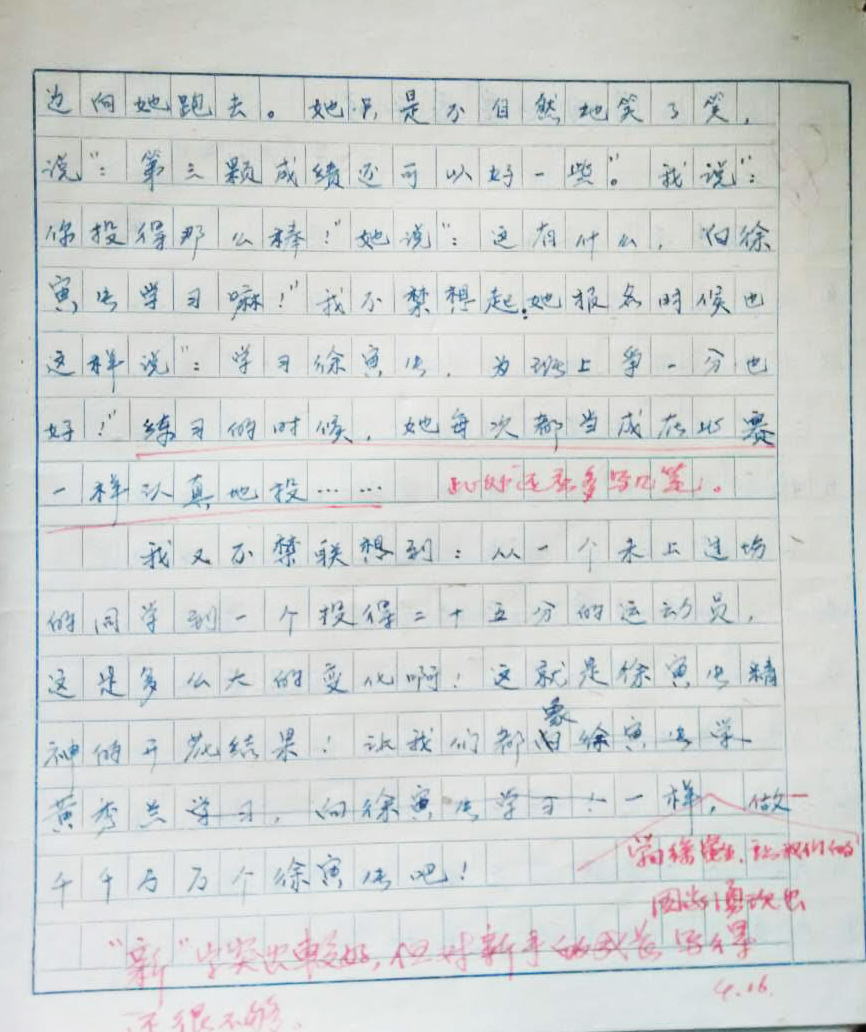 边向她跑去。她只是不自然地笑了笑，
说“：第三颗成绩还可以好一些”。我说“：
你投得那么棒！”她说“：这有什么，向徐
寅生学习嘛！”我不禁想起她报名时候也
这样说“：学习徐寅生，为班上争一分也
好！”练习的时候，她每次都当成在比赛
一样认真地投……
此处还要多写几笔！。
我又不禁联想到：从一个未上过场
的同学到一个投得二十五分的运动员，
这是多么大的变化啊！这就是徐寅生精
神的开花结果！让我们都向徐寅生学
象
黄秀兰学习，向徐寅生学习！一样，做
千千万万个徐寅生吧！
学习徐寅生，让我们的
“新”字突出较好，但对新手的成长写得
还很不够。
4.16.